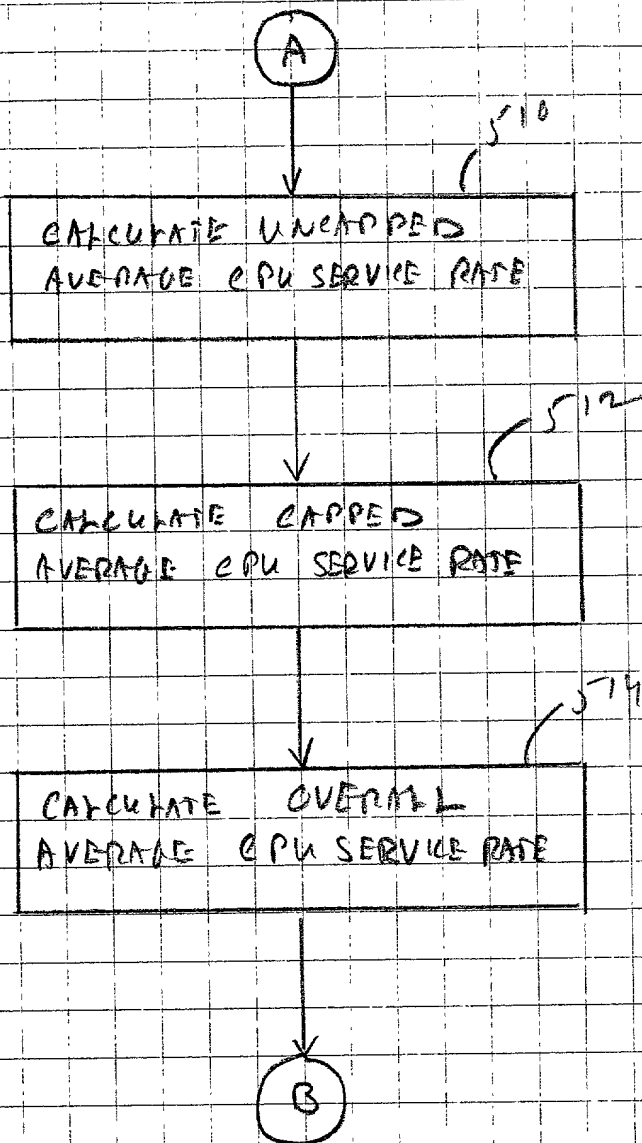 A
510
CALCULATE UNCAPPED
AVERAGE CPU SERVICE RATE
512
CALCULATE CAPPED
AVERAGE CPU SERVICE RATE
514
CALCULATE OVERALL
AVERAGE CPU SERVICE RATE
B